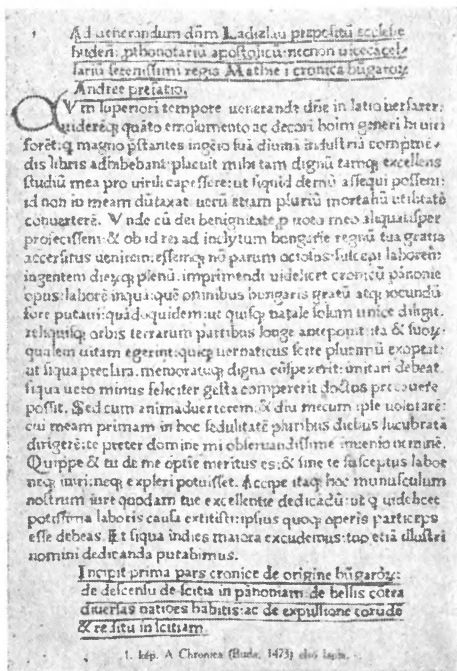 Ad uenerandum dñm Ladislaũ prepositũ ecclesie
budeñ: ꝓthonotariũ apostolicũ: necnon uicecãcel-
lariũ serenissimi regis Mathie: cronica hũgaroꝝ
Andree prefatio.
QVm superiori tempore uenerande dñe in latio uersarer:
uideréqꝫ quãto emolumento ac decori hoim generi hi uiri
forét: qͥ magno pͣstantes ingẽio suã diuinã industriã comptmẽ-
dis libris adhibebant: placuit mihi tam dignũ tamqꝫ excellens
studiũ mea pro uirili capessere: ut siquid demũ assequi possem:
id non in meam dũtaxat: uerũ etiam pluriũ mortaliũ utilitatẽ
conuerterẽ. Vnde cũ dei benignitate ꝑ uoto meo aliquãtisper
profecissem: & ob id rei ad inclytum hongarie regnũ tua gratia
accersitus uenirem: essemqꝫ nõ parum ociosus: suscepi laborem:
ingentem dieꝝqꝫ plenũ: imprimendi uidelicet cronicũ pãnonie
opus: laborẽ inquã: quẽ omnibus hungaris gratũ atqꝫ iocundũ
fore putaui: quãdoquidem: ut quisqꝫ natale solum unice diligit.
reliquisqꝫ orbis terrarum partibus longe anteponit: ita & suoꝝ
qualem uitam egerint: quiqꝫ uernaticus scire plurimũ exoptat:
ut siqua preclara: memoratuqꝫ digna cõspexerit: imitari debeat.
siqua uero minus feliciter gesta compererit doctus precauere
possit. Sed cum animaduerterem: & diu mecum ipse uolutarẽ:
cui meam primam in hoc sedulitatẽ pluribus diebus lucubratã
dirigerẽ: te preter domine mi obseruandissime inuenio neminẽ.
Quippe & tu de me optĩe meritus es: & sine te susceptus labor
neqꝫ iniri: neqꝫ expleri potuisset. Accipe itaqꝫ hoc munusculum
nostrum iure quodam tue excellentie dedicadũ: ut qͥ uidelicet
potissima laboris causa extitisti: ipsius quoqꝫ operis particeps
esse debeas. Et siqua indies maiora excudemus: tuo etiã illustri
nomini dedicanda putabimus.
Incipit prima pars cronice de origine hũgaroꝝ:
de descensu de scitia in pãnoniam: de bellis cõtra
diuersas nationes habitis: ac de expulsione eorũdẽ
& reditu in scitiam.
1. kép. A Chronica (Buda, 1473) első lapja.